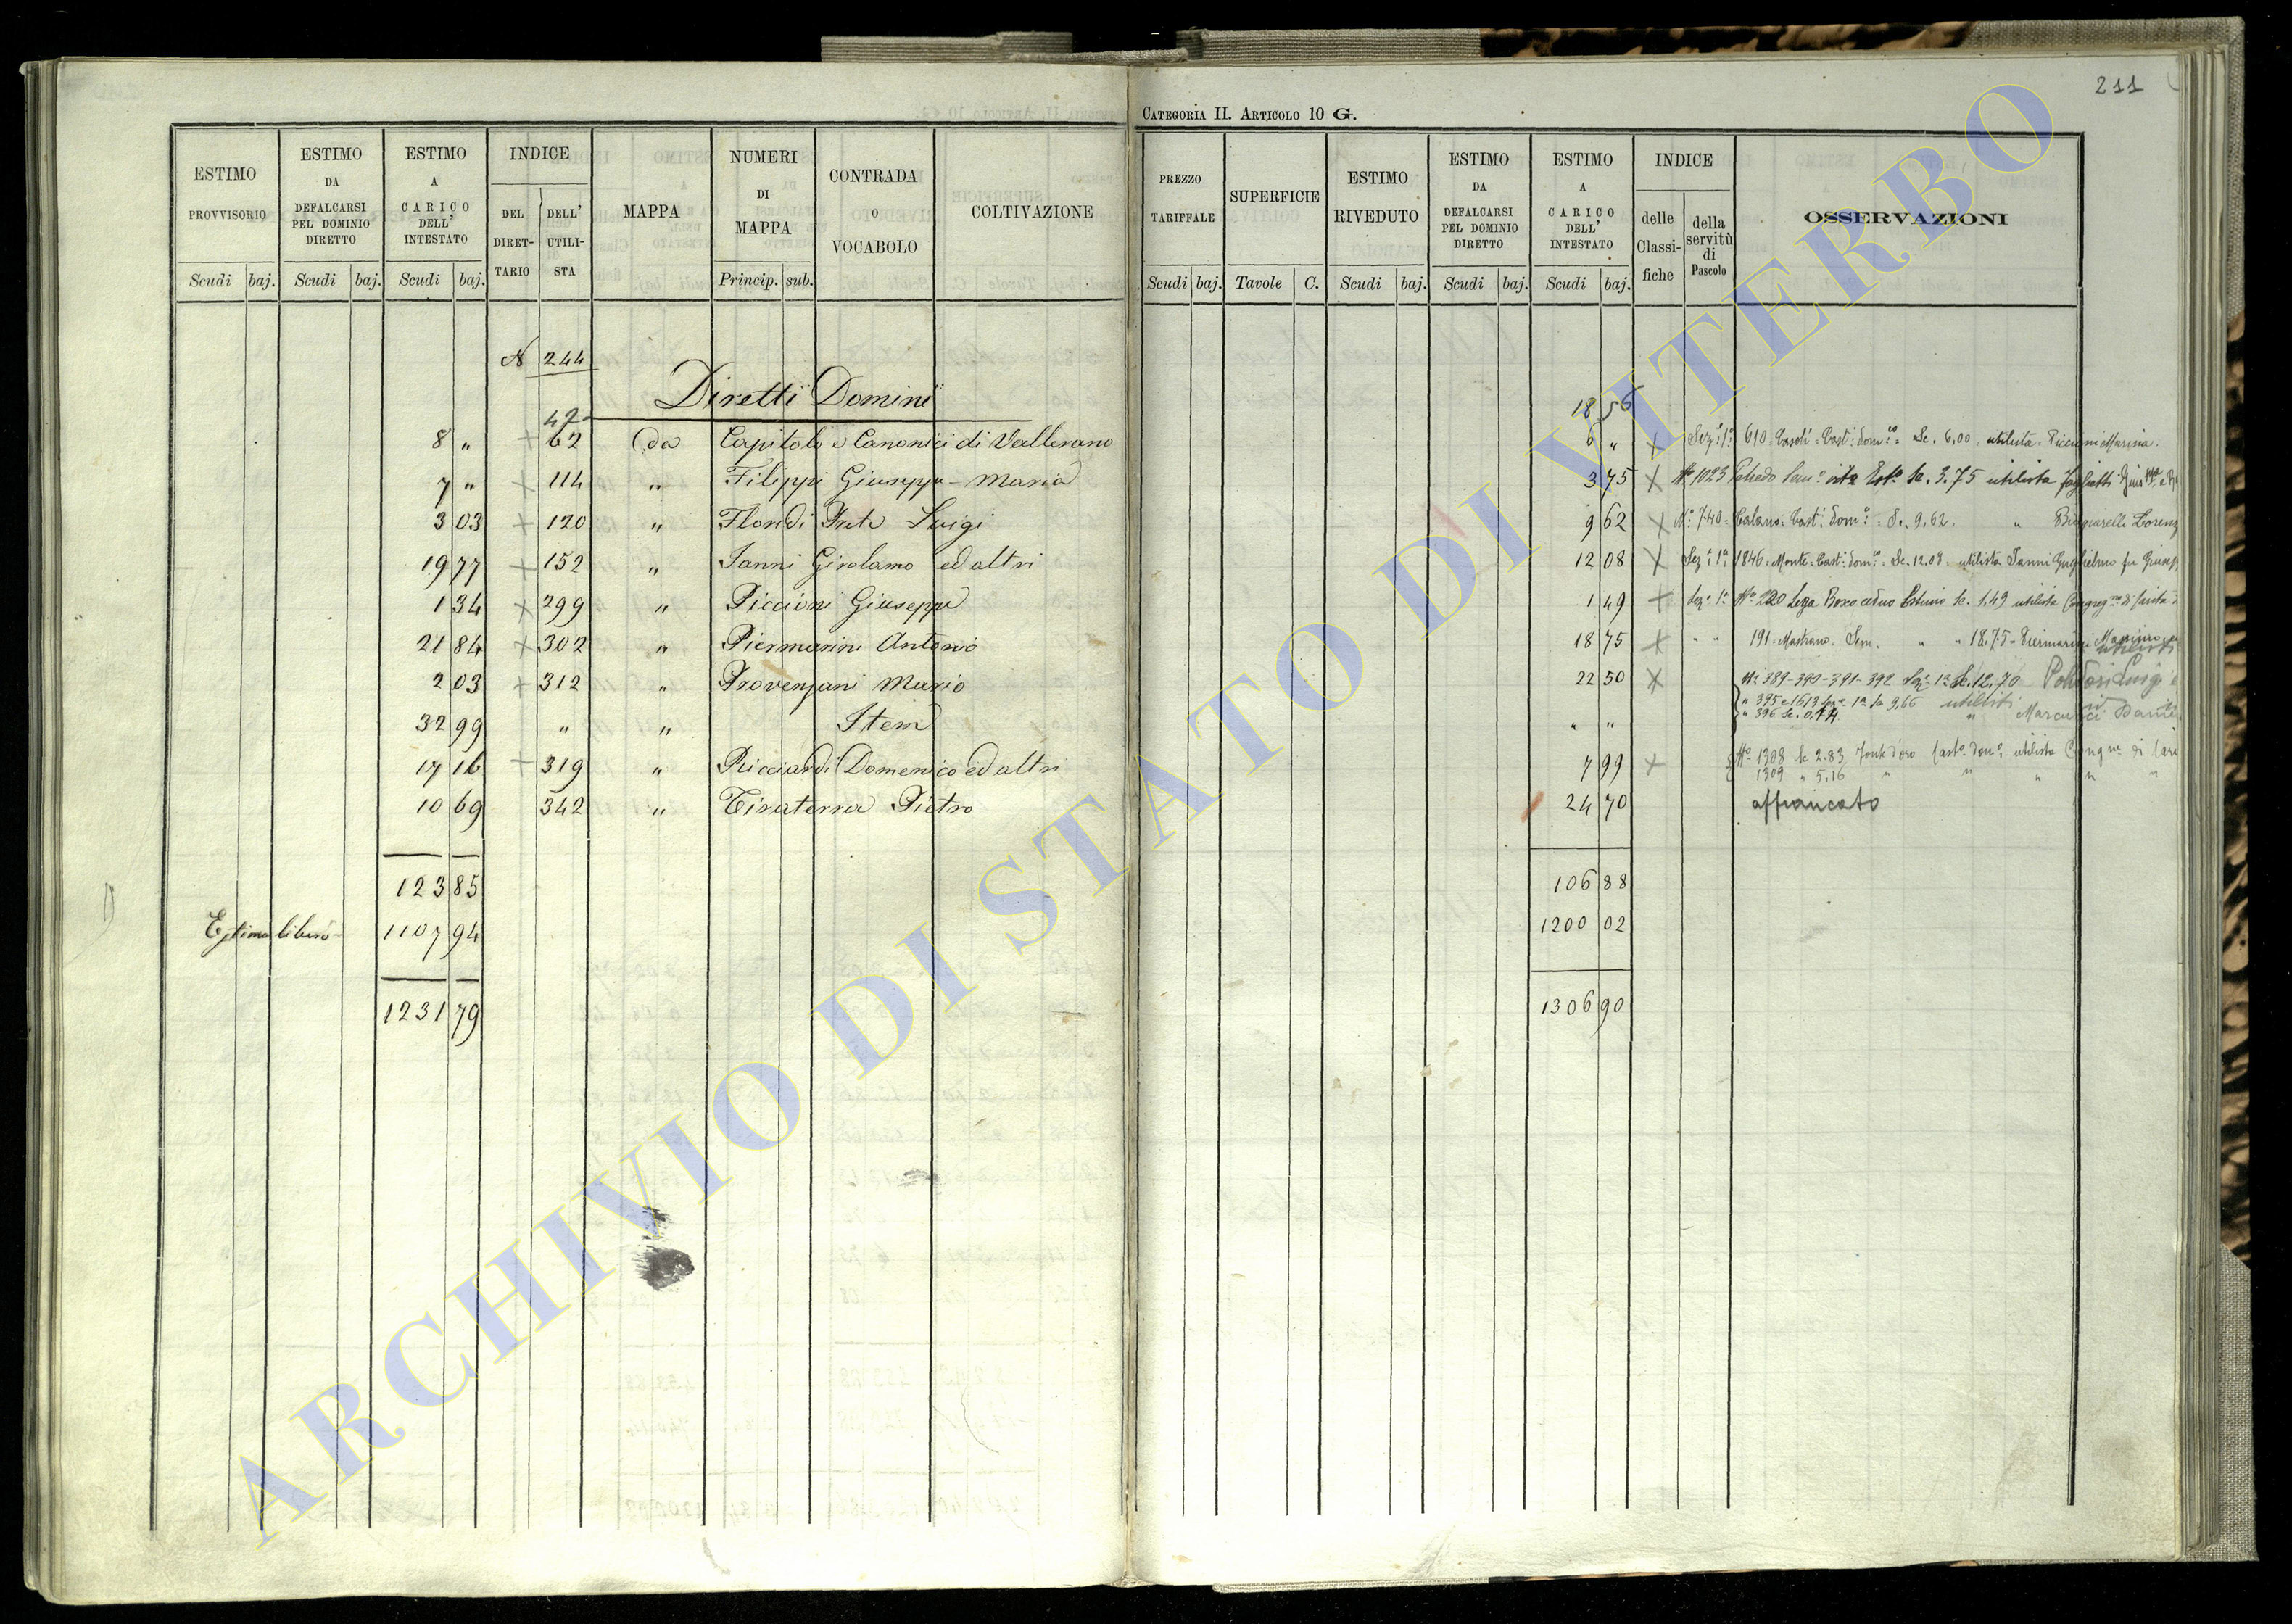 211
CATEGORIA II. ARTICOLO 10 G.
ESTIMO PROVVISORIO
Scudi baj.
ESTIMO DA DEFALCARSI PEL DOMINIO DIRETTO
Scudi baj.
ESTIMO A CARICO DELL' INTESTATO
Scudi baj.
INDICE
DEL DIRET-TARIO
DELL' UTILI-STA
MAPPA
NUMERI DI MAPPA
Princip. sub.
CONTRADA O VOCABOLO
COLTIVAZIONE
PREZZO TARIFFALE
Scudi baj.
SUPERFICIE
Tavole C.
ESTIMO RIVEDUTO
Scudi baj.
ESTIMO DA DEFALCARSI PEL DOMINIO DIRETTO
Scudi baj.
ESTIMO A CARICO DELL' INTESTATO
Scudi baj.
INDICE
delle Classi-fiche
della servitù di Pascolo
OSSERVAZIONI
N 244
Diretti Domini
42
8 " + 62 Da Capitolo e Canonici di Vallerano
7 " + 114 " Filippi Giuseppe-Maria
3 03 + 120 " Floridi Prete Luigi
19 77 + 152 " Janni Girolamo ed altri
1 34 + 299 " Piccioni Giuseppe
21 84 + 302 " Piermarini Antonio
2 03 + 312 " Provenzani Mario
32 99 " " Item
17 16 + 319 " Ricciardi Domenico ed altri
10 69 342 " Tiraterra Pietro
123 85
Estimo libero 1107 94
1231 79
18 56
6 " X Sez: 1a 610 Cast: dom: Sc. 6,00 utilista Piccioni Marina
3 75 X No 1023 Sc. 3.75 utilista
9 62 X No 740 Cast: dom: Sc. 9,62 "  Lorenz
12 08 X Sez: 1a 1846 Monte Cast: dom: Sc. 12.08 utilista Janni Guglielmo fu Giusep
1 49 X Sez: 1a No 220 Bosco ceduo Sc. 1,49 utilista
18 75 X " " 191 Sem. " " 18.75
22 50 X No 389-390-391-392 Sez: 1a Sc. 12.70 Luigi
" 395 e 1613 Sez: 1a Sc 9,66 utilisti
" " " 396 Sc. 0,14 " Marcucci
7 99 X No 1308 Sc 2.83 utilista
1309 " 5,16 " " " " "
24 70 affrancato
106 88
1200 02
1306 90
ARCHIVIO DI STATO DI VITERBO